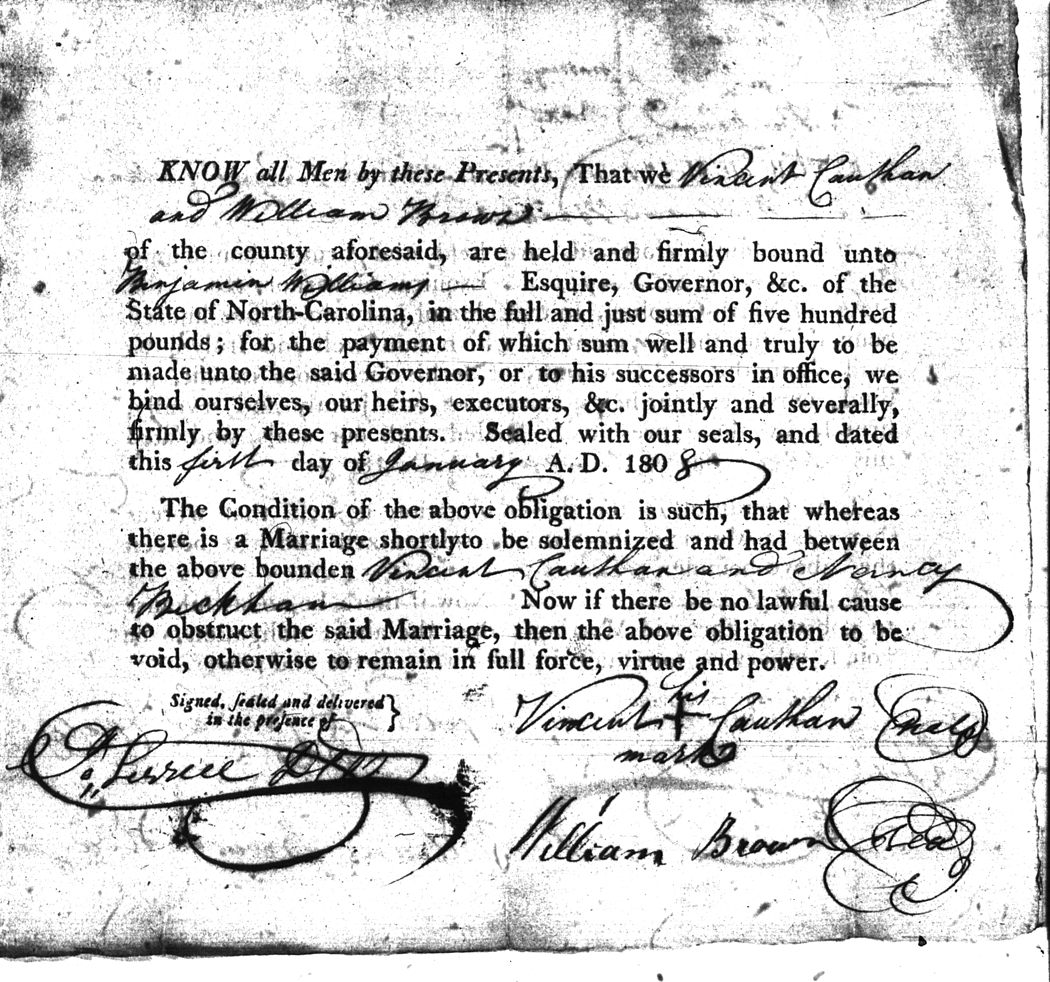 KNOW all Men by these Presents, That we Vincent Cauthan
and William Brown
of the county aforesaid, are held and firmly bound unto
Benjamin Williams Esquire, Governor, &c. of the
State of North-Carolina, in the full and just sum of five hundred
pounds; for the payment of which sum well and truly to be
made unto the said Governor, or to his successors in office, we
bind ourselves, our heirs, executors, &c. jointly and severally,
firmly by these presents. Sealed with our seals, and dated
this first day of January A. D. 1808
The Condition of the above obligation is such, that whereas
there is a Marriage shortlyto be solemnized and had between
the above bounden Vincent Cauthan and Nancy
Beckham Now if there be no lawful cause
to obstruct the said Marriage, then the above obligation to be
void, otherwise to remain in full force, virtue and power.
Signed, sealed and delivered
in the presence of
his
Vincent + Cauthan
mark
William Brown Seal